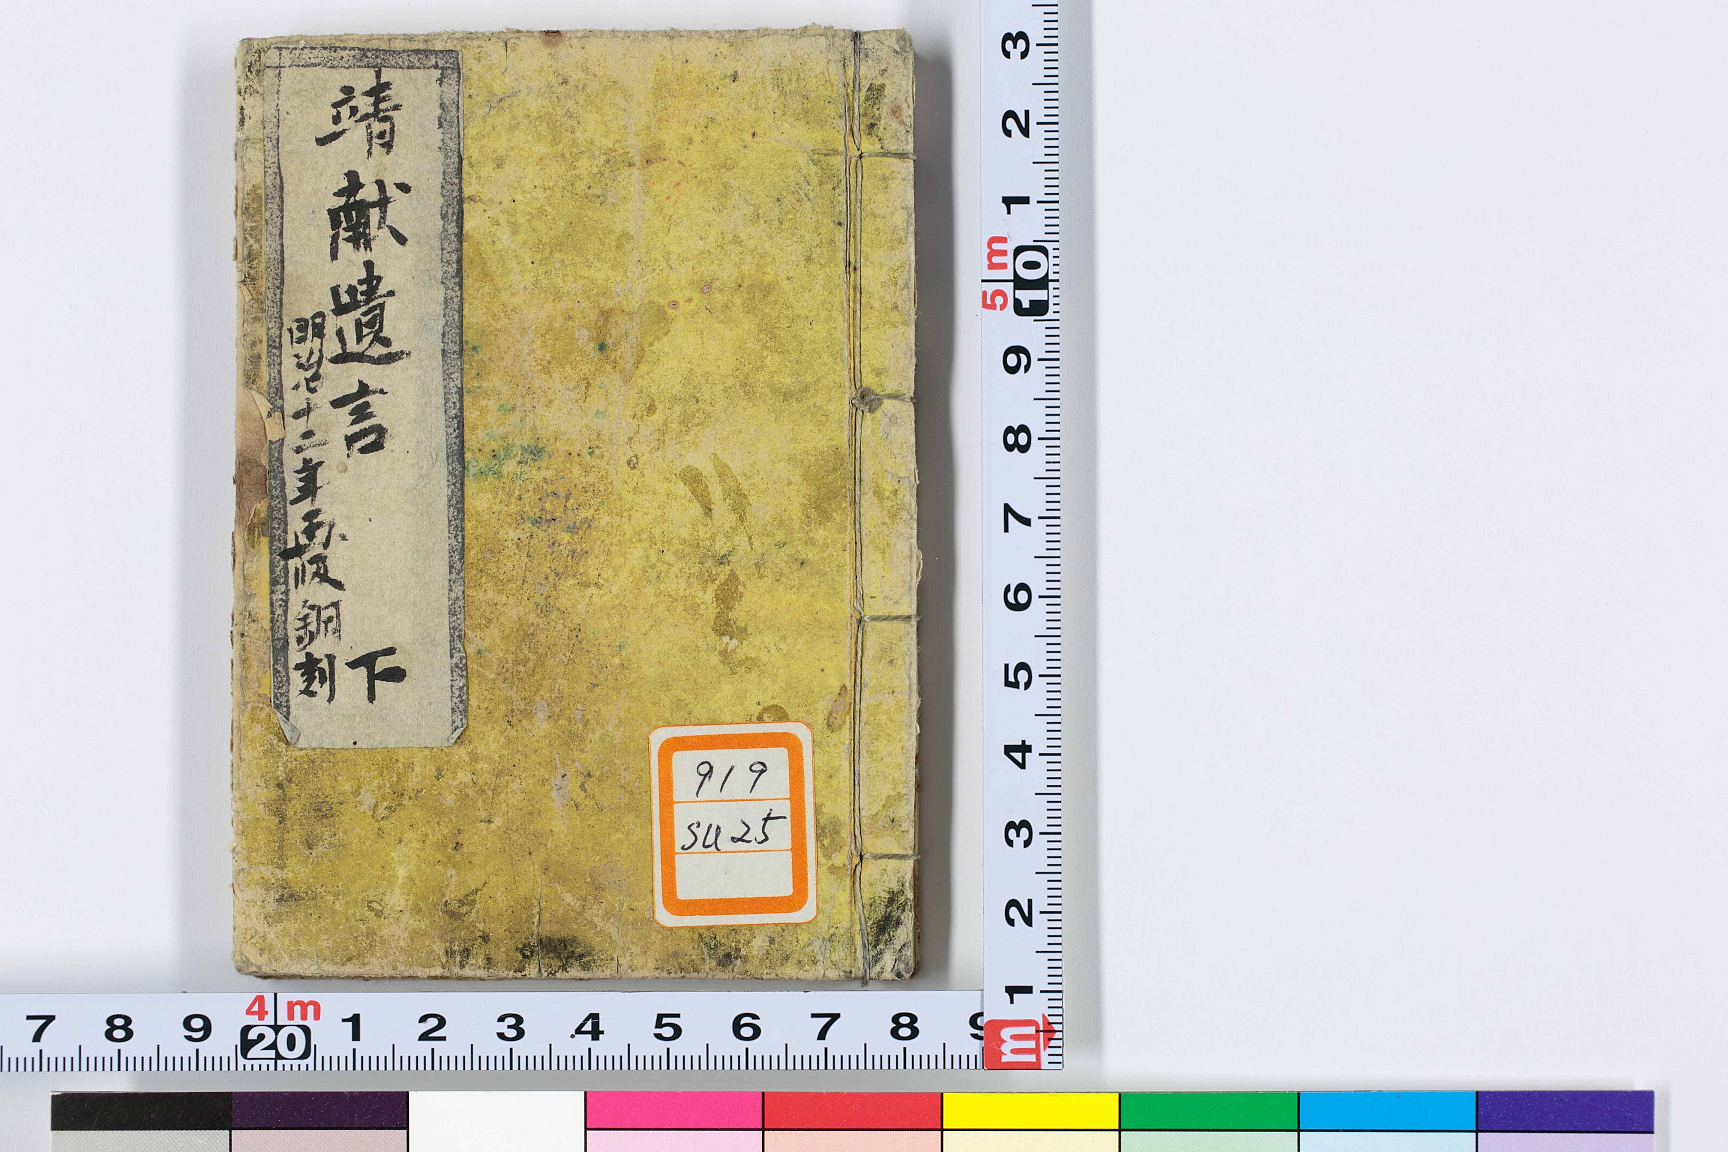 靖献遺言
下
明治十二年再版銅刻
919
SU25
3
2
1
5m
10
9
8
7
6
5
4
3
2
1
m
7 8 9 4m 20 1 2 3 4 5 6 7 8 9